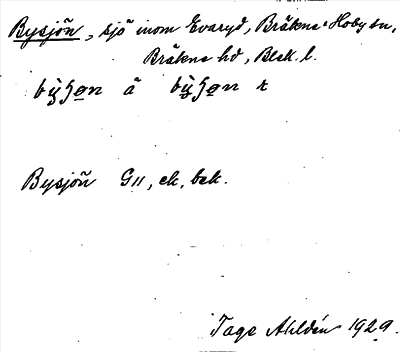 Bysjön, sjö inom Evaryd, Bräkne-Hoby sn,
Bräkne hd, Blek. l.
å
Bysjön G11, ek, bek.
Tage Ahldén 1929.